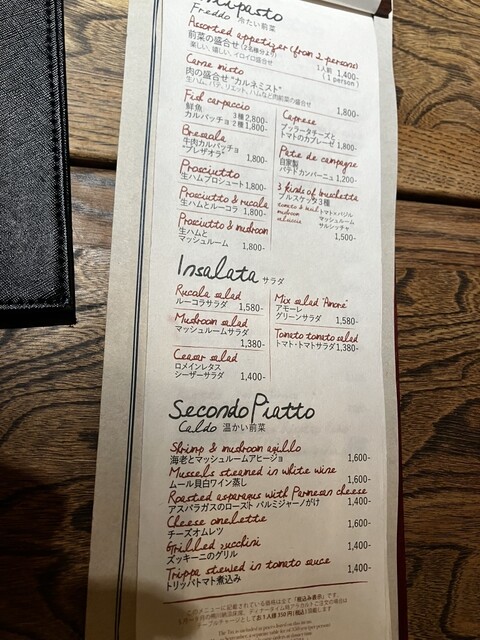 Freddo 冷たい前菜
Assorted appetizer (from 2 persons)
前菜の盛合せ (2名様分より) 1人前 1,400-
楽しい、嬉しい、イロイロ盛合せ (1 person)
Carne misto
肉の盛合せ "カルネミスト"
生ハム、パテ、リエット、ハムなど肉前菜の盛合せ 1,800-
Fish carpaccio
鮮魚 3種 2,800-
カルパッチョ 2種 1,800-
Bresaola
牛肉カルパッチョ
"ブレザオラ" 1,800-
Prosciutto
生ハムプロシュート 1,800-
Prosciutto & rucola
生ハムとルーコラ 1,800-
Prosciutto & mushroom
生ハムと
マッシュルーム 1,800-
Caprese
ブッラータチーズと
トマトのカプレーゼ 1,800-
Pate de campagne
自家製
パテドカンパーニュ 1,200-
3 kinds of bruschetta
ブルスケッタ3種
トマト×バジル
mushroom マッシュルーム
salsiccia サルシッチャ
1,500-
Insalata サラダ
Rucola salad
ルーコラサラダ 1,580-
Mushroom salad
マッシュルームサラダ
1,380-
Ceasar salad
ロメインレタス
シーザーサラダ 1,400-
Mix salad "Amore"
アモーレ
グリーンサラダ 1,580-
Tomato tomato salad
トマト・トマトサラダ 1,380-
Secondo Piatto
Caldo 温かい前菜
Shrimp & mushroom agillo
海老とマッシュルームアヒージョ 1,600-
Mussels steamed in white wine
ムール貝白ワイン蒸し 1,600-
Roasted asparagus with Parmesan cheese
アスパラガスのロースト パルミジャーノがけ 1,400-
Cheese omelette
チーズオムレツ 1,600-
Grilled zucchini
ズッキーニのグリル 1,400-
Trippa stewed in tomato sauce
トリッパトマト煮込み 1,400-
このメニューに記載されている価格は全て「税込み表示」です。